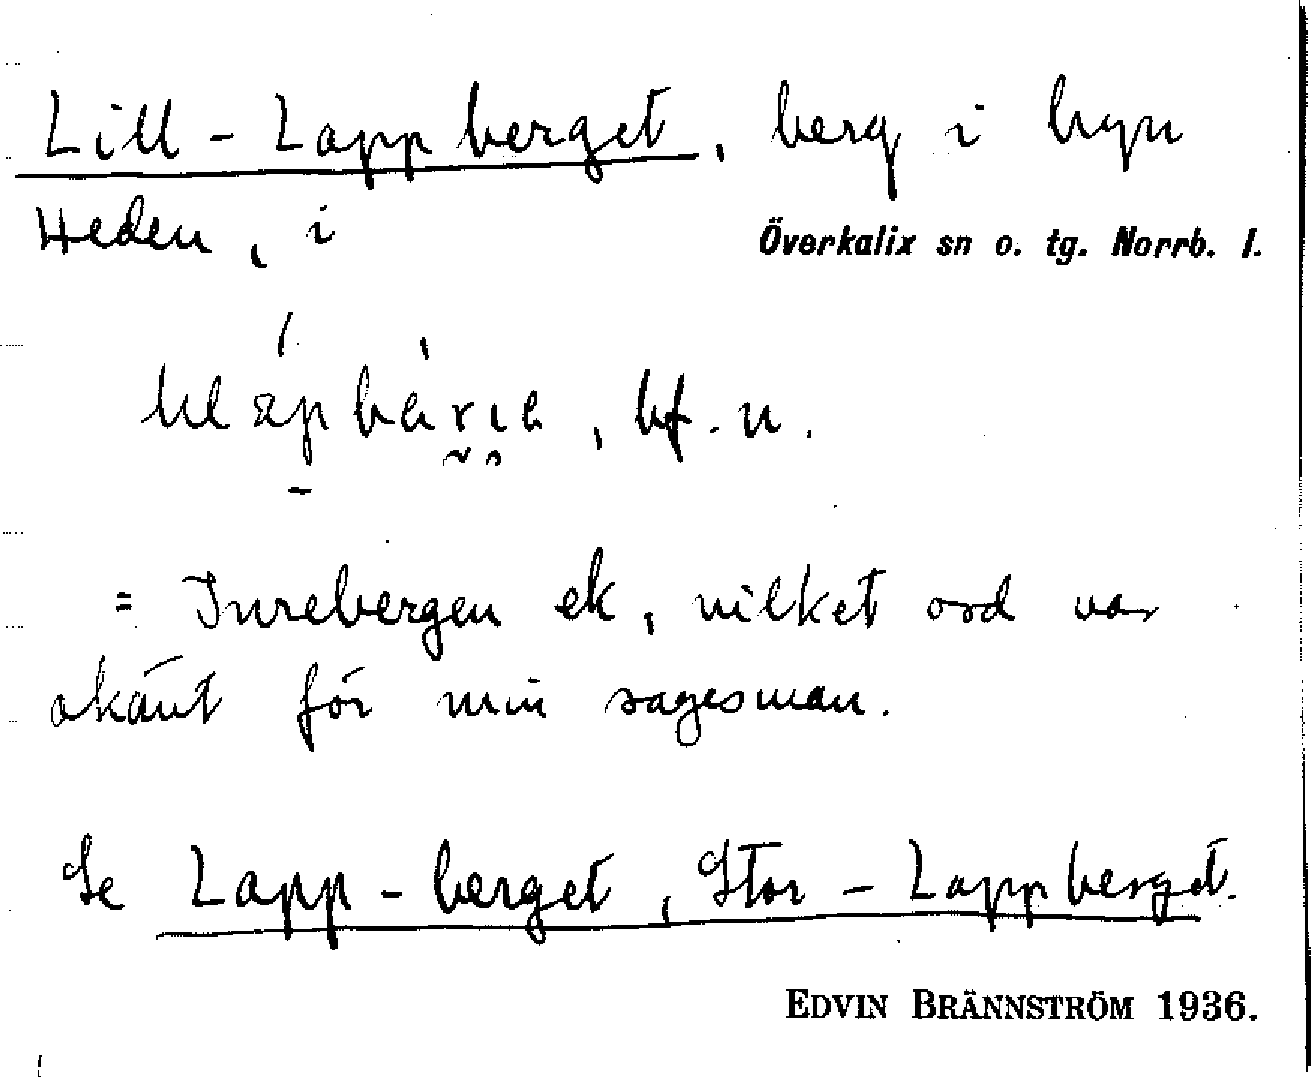 Lill-Lappberget, berg i byn
Heden, i Överkalix sn o. tg. Norrb. l.
, bf. n.
= Inrebergen ek, vilket ord var
okänt för min sagesman.
Se Lapp-berget, Stor-Lappberget.
EDVIN BRÄNNSTRÖM 1936.